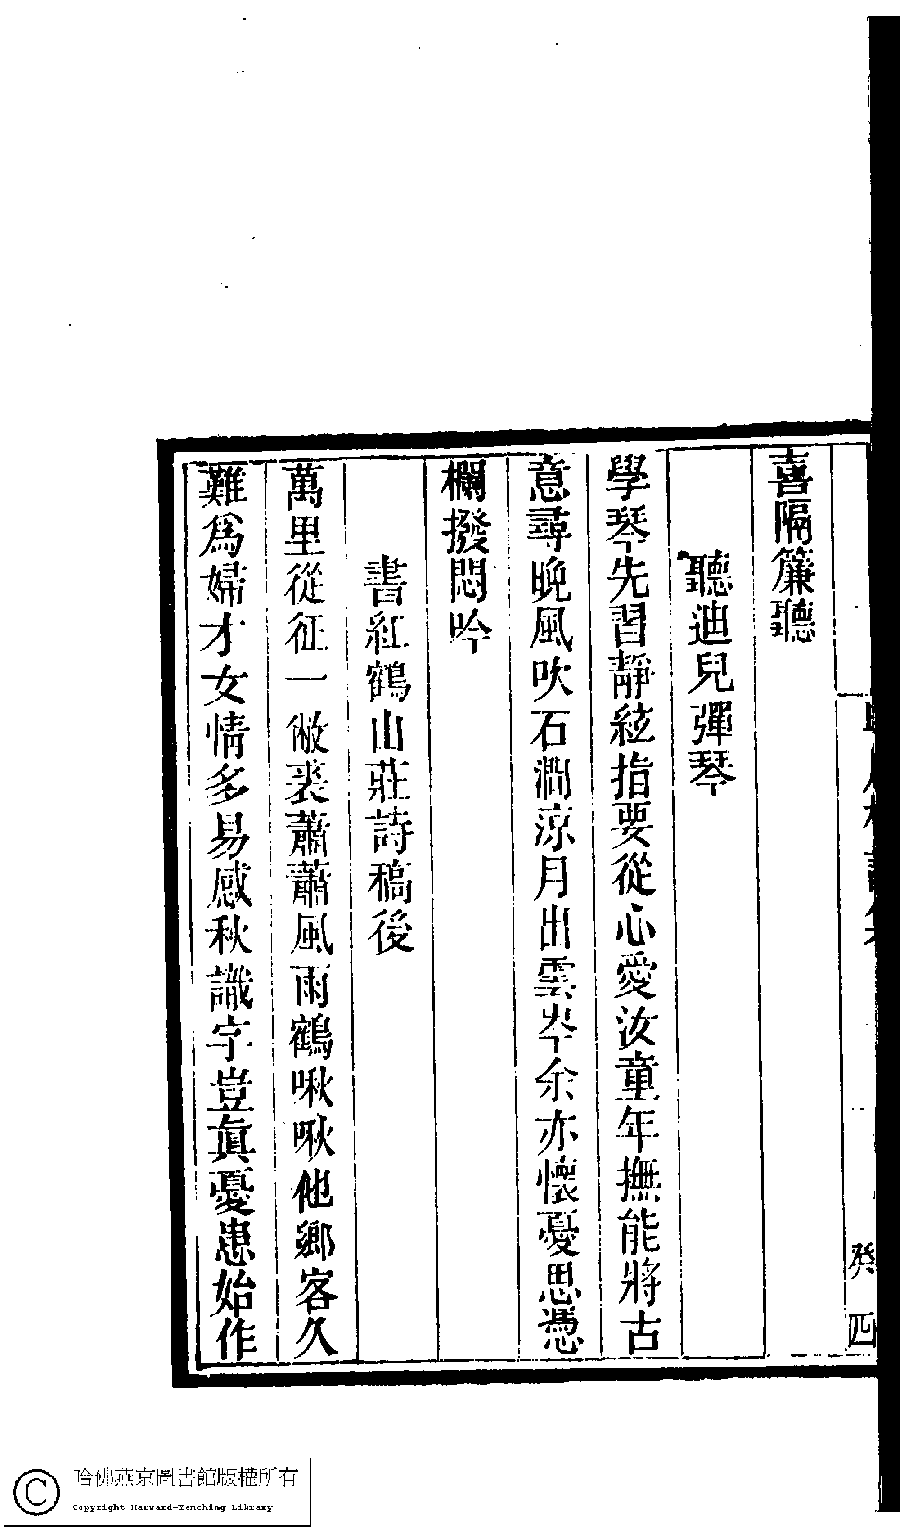 喜隔簾聽
聽迪兒彈琴
學琴先習靜絃指要從心愛汝童年撫能將古
意尋晚風吹石澗涼月出雲岑余亦懷憂思憑
欄撥悶吟
書紅鶴山莊詩稿後
萬里從征一敝裘蕭蕭風雨鶴啾啾他鄉客久
難爲婦才女情多易感秋識字豈眞憂患始作
癸 四
哈佛燕京圖書館版權所有
Copyright Harvard-Yenching Library